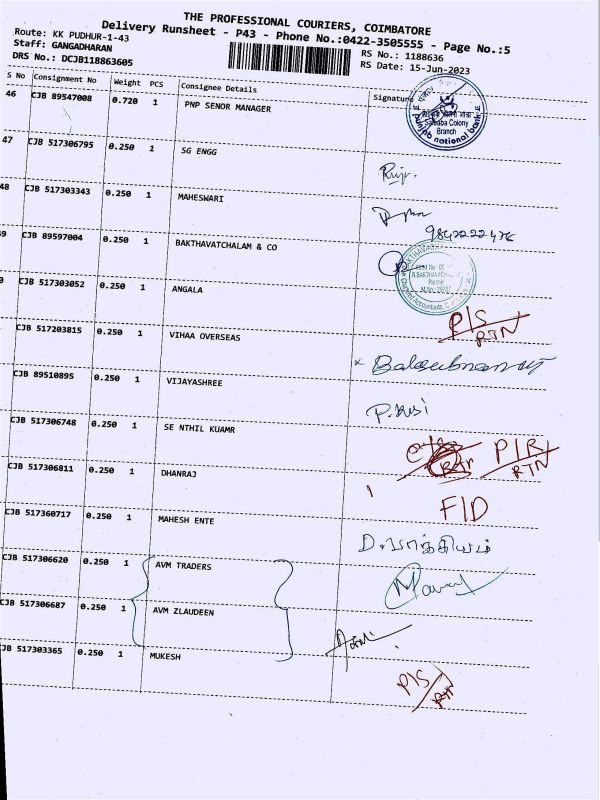 THE PROFESSIONAL COURIERS, COIMBATORE
Delivery Runsheet - P43 - Phone No.:0422-3505555 - Page No.:5
Route: KK PUDHUR-1-43
Staff: GANGADHARAN
DRS No.: DCJB118863605
RS No.: 1188636
RS Date: 15-Jun-2023
S No Consignment No Weight PCS Consignee Details Signature
46 CJB 89547008 0.720 1 PNP SENOR MANAGER
Saibaba Colony
Branch
punjab national bank
47 CJB 517306795 0.250 1 SG ENGG
48 CJB 517303343 0.250 1 MAHESWARI
9842222476
9 CJB 89597004 0.250 1 BAKTHAVATCHALAM & CO
Partner
0 CJB 517303052 0.250 1 ANGALA
P/S
RTN
CJB 517203815 0.250 1 VIHAA OVERSEAS
CJB 89510895 0.250 1 VIJAYASHREE
CJB 517306748 0.250 1 SE NTHIL KUAMR
P/R
RTN
CJB 517306811 0.250 1 DHANRAJ
F/D
CJB 517360717 0.250 1 MAHESH ENTE
CJB 517306620 0.250 1 AVM TRADERS
CJB 517306687 0.250 1 AVM ZLAUDEEN
CJB 517303365 0.250 1 MUKESH
P/S
RTN